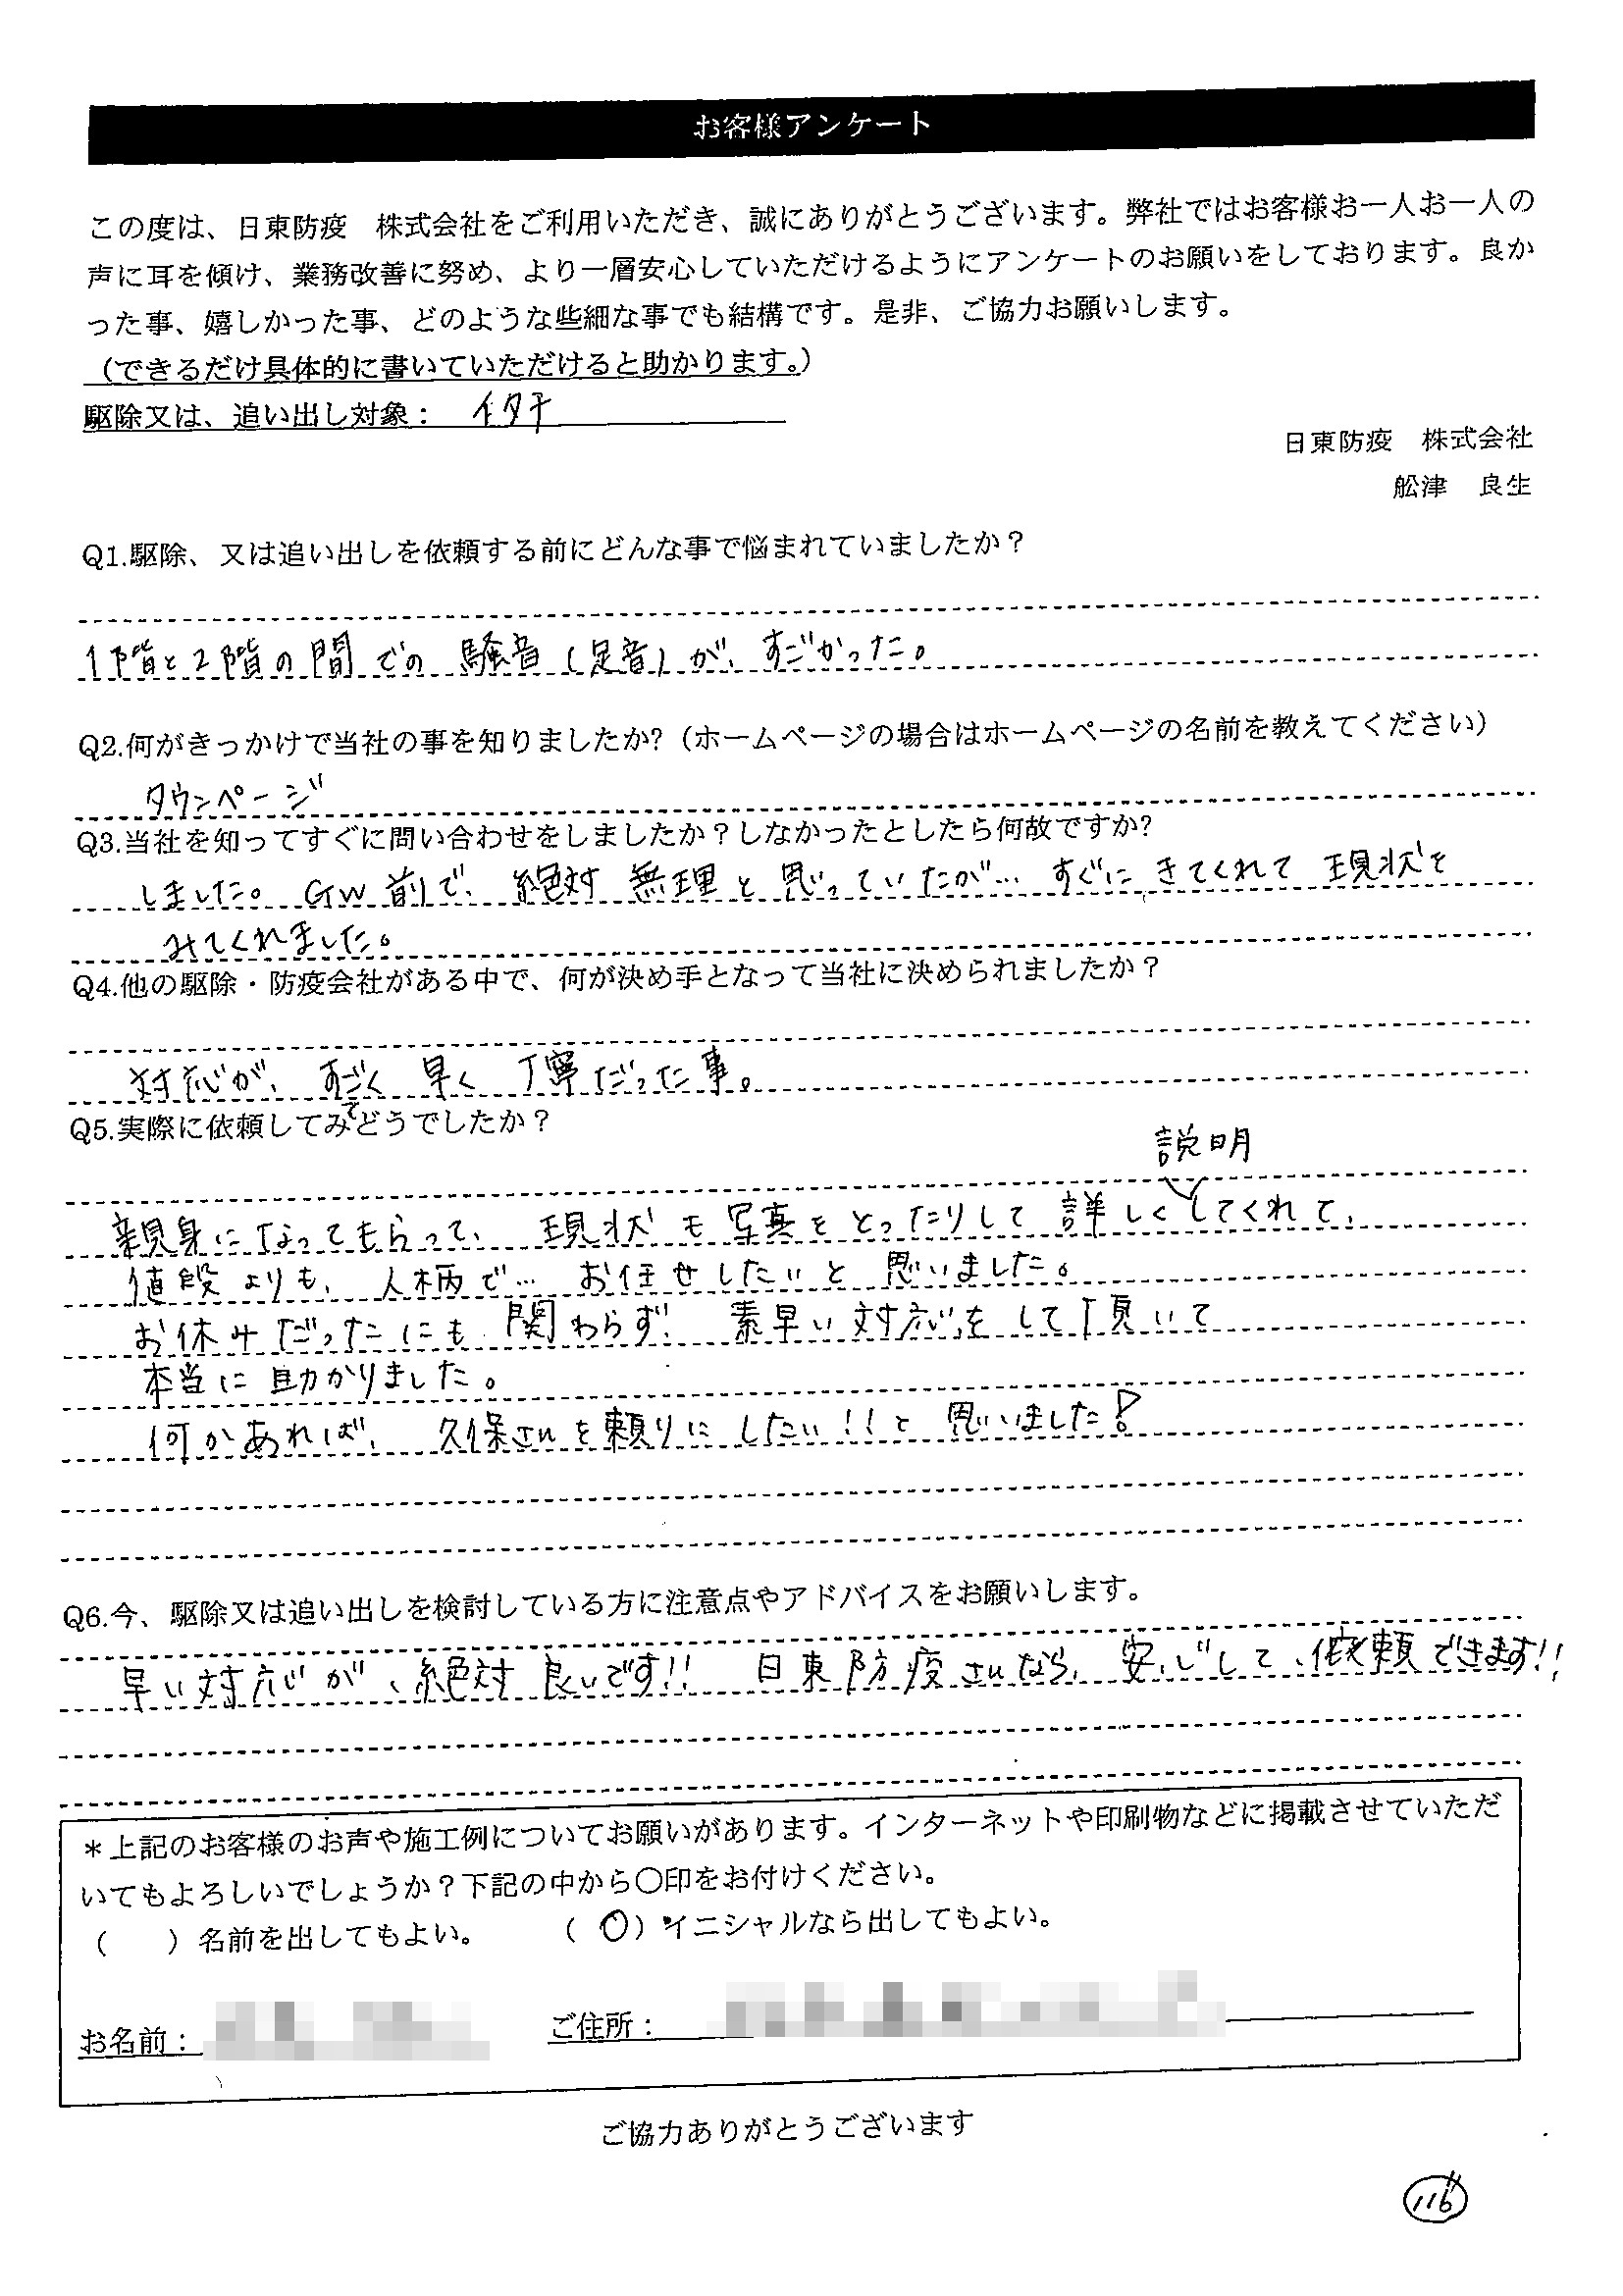 お客様アンケート
この度は、日東防疫　株式会社をご利用いただき、誠にありがとうございます。弊社ではお客様お一人お一人の
声に耳を傾け、業務改善に努め、より一層安心していただけるようにアンケートのお願いをしております。良か
った事、嬉しかった事、どのような些細な事でも結構です。是非、ご協力お願いします。
（できるだけ具体的に書いていただけると助かります。）
駆除又は、追い出し対象： イタチ
日東防疫　株式会社
舩津　良生
Q1.駆除、又は追い出しを依頼する前にどんな事で悩まれていましたか？
1階と2階の間での騒音(足音)が、すごかった。
Q2.何がきっかけで当社の事を知りましたか?（ホームページの場合はホームページの名前を教えてください）
タウンページ
Q3.当社を知ってすぐに問い合わせをしましたか？しなかったとしたら何故ですか?
しました。GW前で、絶対無理と思っていたが… すぐにきてくれて現状を
みてくれました。
Q4.他の駆除・防疫会社がある中で、何が決め手となって当社に決められましたか？
対応が、すごく早く丁寧だった事。
Q5.実際に依頼してみてどうでしたか？
説明
親身になってもらって、現状も写真をとったりして詳しくしてくれて、
値段よりも、人柄で… お任せしたいと思いました。
お休みだったにも関わらず、素早い対応をして頂いて
本当に助かりました。
何かあれば、久保さんを頼りにしたい!!と思いました!
Q6.今、駆除又は追い出しを検討している方に注意点やアドバイスをお願いします。
早い対応が、絶対良いです!! 日東防疫さんなら、安心して、依頼できます!!
＊上記のお客様のお声や施工例についてお願いがあります。インターネットや印刷物などに掲載させていただ
いてもよろしいでしょうか？下記の中から〇印をお付けください。
（　　）名前を出してもよい。　　（〇）イニシャルなら出してもよい。
お名前：　　ご住所：
ご協力ありがとうございます
116